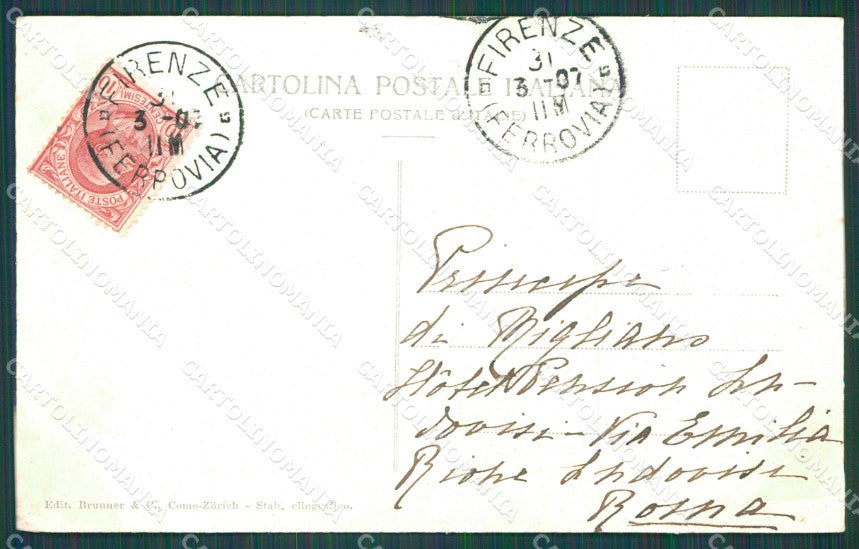 CARTOLINA POSTALE ITALIANA
(CARTE POSTALE
FIRENZE
31
3 -07
11 M
(FERROVIA)
FIRENZE
31
3 -07
11 M
(FERROVIA)
POSTE ITALIANE
Principe
di Migliano
Hôtel Pension Lu-
dovisi - Via Emilia
Rione Ludovisi
Roma
Edit. Brunner & C., Como-Zürich - Stab. eliografico.
CARTOLINOMANIA